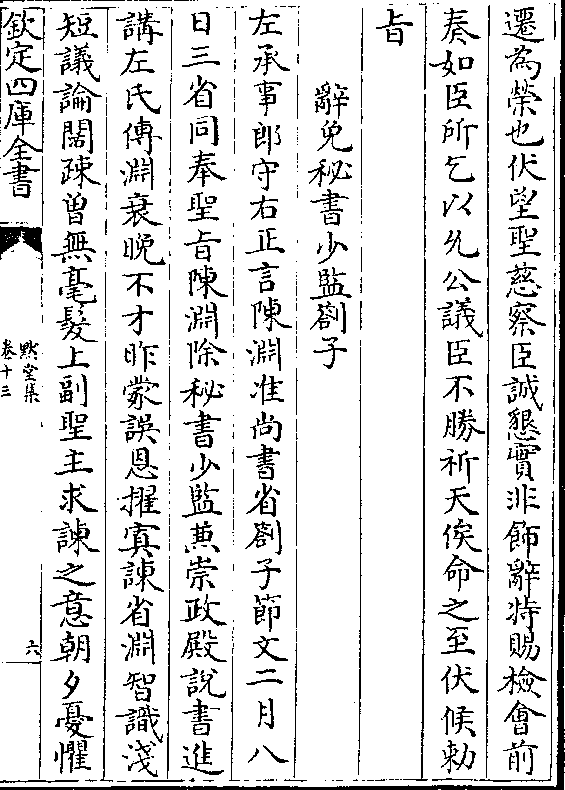 遷為榮也伏望聖慈察臣誠懇實非飾辭特賜檢會前
奏如臣所乞以允公議臣不勝祈天俟命之至伏候勅
旨
辭免秘書少監劄子
左承事郎守右正言陳淵准尚書省劄子節文二月八
日三省同奉聖旨陳淵除秘書少監兼崇政殿說書進
講左氏傳淵衰晚不才昨蒙誤恩擢寘諫省淵智識淺
短議論闊疎曽無毫髮上副聖主求諫之意朝夕憂懼
欽定四庫全書
默堂集
卷十三
六